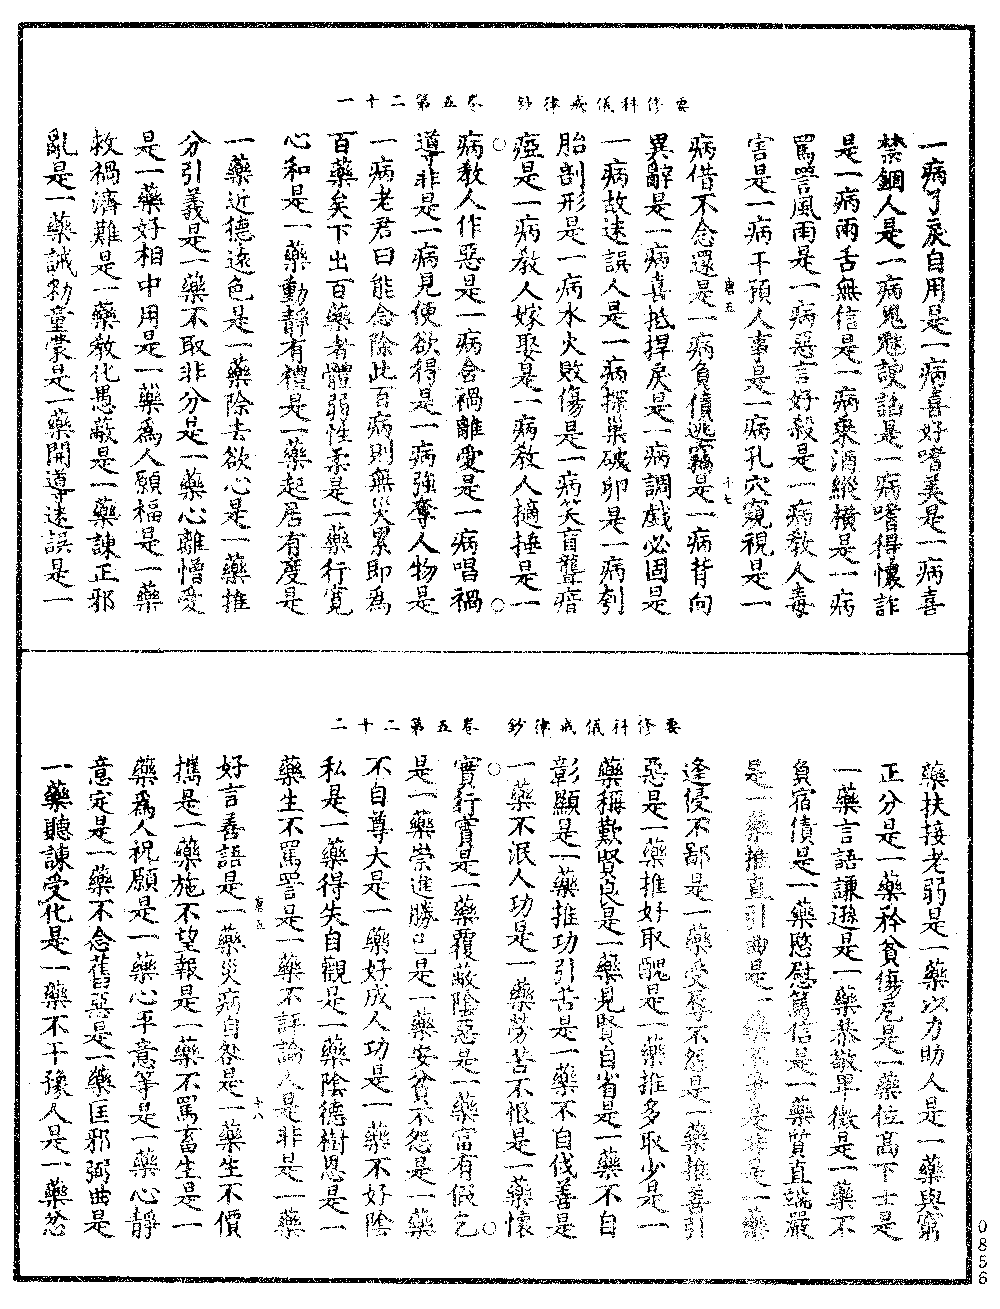 要修科儀戒律鈔　卷五第二十一
一病了戾自用是一病喜好嗜義是一病喜
禁錮人是一病鬼魅諛諂是一病嗜得懷詐
是一病兩舌無信是一病乘酒縱橫是一病
罵詈風雨是一病惡言好殺是一病教人毒
害是一病干預人事是一病孔穴窺視是一
病借不念還是一病負債逃竊是一病背向
唐五　十七
異辭是一病喜抵捍戾是一病調戲必固是
一病故迷誤人是一病探巢破卵是一病刳
胎剖形是一病水火敗傷是一病笑盲聾瘖
瘂是一病教人嫁娶是一病教人摘捶是一
病教人作惡是一病含禍離愛是一病唱禍
導非是一病見便欲得是一病強奪人物是
一病老君曰能念除此百病則無災累即為
百藥矣下出百藥者體弱性柔是一藥行寬
心和是一藥動靜有禮是一藥起居有度是
一藥近德遠色是一藥除去欲心是一藥推
分引義是一藥不取非分是一藥心離憎愛
是一藥好相中用是一藥為人願福是一藥
救禍濟難是一藥教化愚蔽是一藥諫正邪
亂是一藥誡勑童蒙是一藥開導迷誤是一
要修科儀戒律鈔　卷五第二十二
藥扶接老弱是一藥以力助人是一藥與窮
正分是一藥矜貧傷危是一藥位高下士是
一藥言語謙遜是一藥恭敬卑微是一藥不
負宿債是一藥愍慰篤信是一藥質直端嚴
是一藥推直引曲是一藥不爭是非是一藥
逢侵不鄙是一藥受辱不怨是一藥推善引
惡是一藥推好取醜是一藥推多取少是一
藥稱歎賢良是一藥見賢自省是一藥不自
彰顯是一藥推功引苦是一藥不自伐善是
一藥不泯人功是一藥勞苦不恨是一藥懷
實行實是一藥覆蔽陰惡是一藥富有假乞
是一藥崇進勝己是一藥安貧不怨是一藥
不自尊大是一藥好成人功是一藥不好陰
私是一藥得失自觀是一藥陰德樹恩是一
藥生不罵詈是一藥不評論人是非是一藥
唐五　十八
好言善語是一藥災病自咎是一藥生不價
搗是一藥施不望報是一藥不罵畜生是一
藥為人祝願是一藥心平意等是一藥心靜
意定是一藥不念舊惡是一藥匡邪弼曲是
一藥聽諫受化是一藥不干豫人是一藥忿
0856